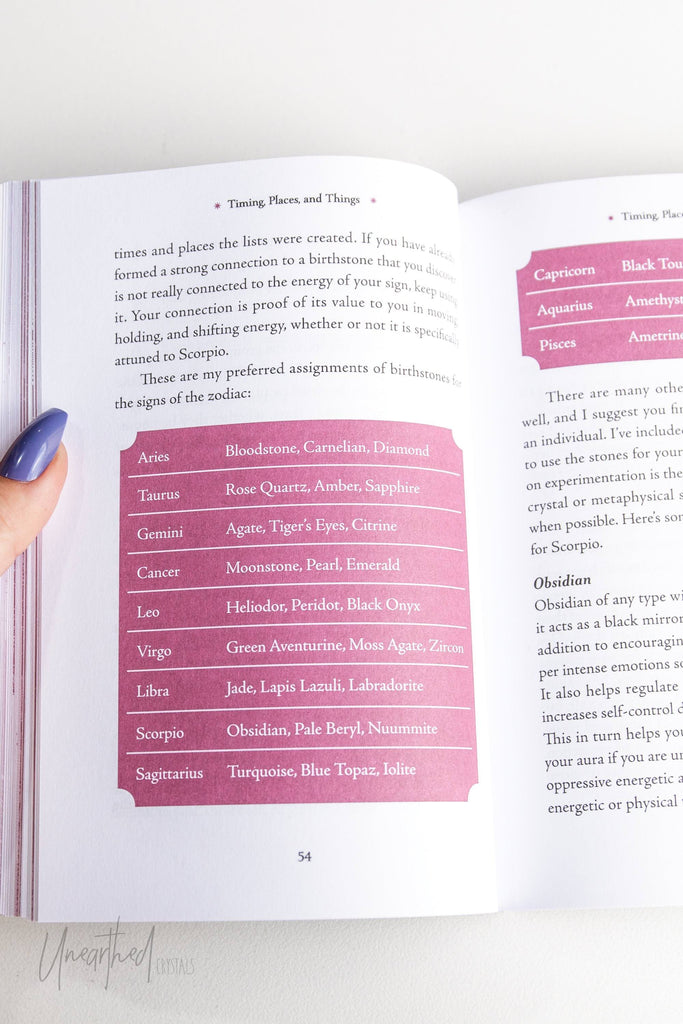 Timing, Places, and Things
times and places the lists were created. If you have
formed a strong connection to a birthstone that you
is not really connected to the energy of your sign, keep using
it. Your connection is proof of its value to you in moving,
holding, and shifting energy, whether or not it is specifically
attuned to Scorpio.
These are my preferred assignments of birthstones for
the signs of the zodiac:
Aries Bloodstone, Carnelian, Diamond
Taurus Rose Quartz, Amber, Sapphire
Gemini Agate, Tiger's Eyes, Citrine
Cancer Moonstone, Pearl, Emerald
Leo Heliodor, Peridot, Black Onyx
Virgo Green Aventurine, Moss Agate, Zircon
Libra Jade, Lapis Lazuli, Labradorite
Scorpio Obsidian, Pale Beryl, Nuummite
Sagittarius Turquoise, Blue Topaz, Iolite
54
Timing,
Capricorn Black
Aquarius Amethyst
Pisces Ametrine
There are many
well, and I suggest you
an individual. I've included
to use the stones for your
on experimentation is the
crystal or metaphysical
when possible. Here's
for Scorpio.
Obsidian
Obsidian of any type
it acts as a black mirror
addition to encouraging
per intense emotions
It also helps regulate
increases self-control
This in turn helps
your aura if you are
oppressive energetic
energetic or physical
Unearthed
CRYSTALS